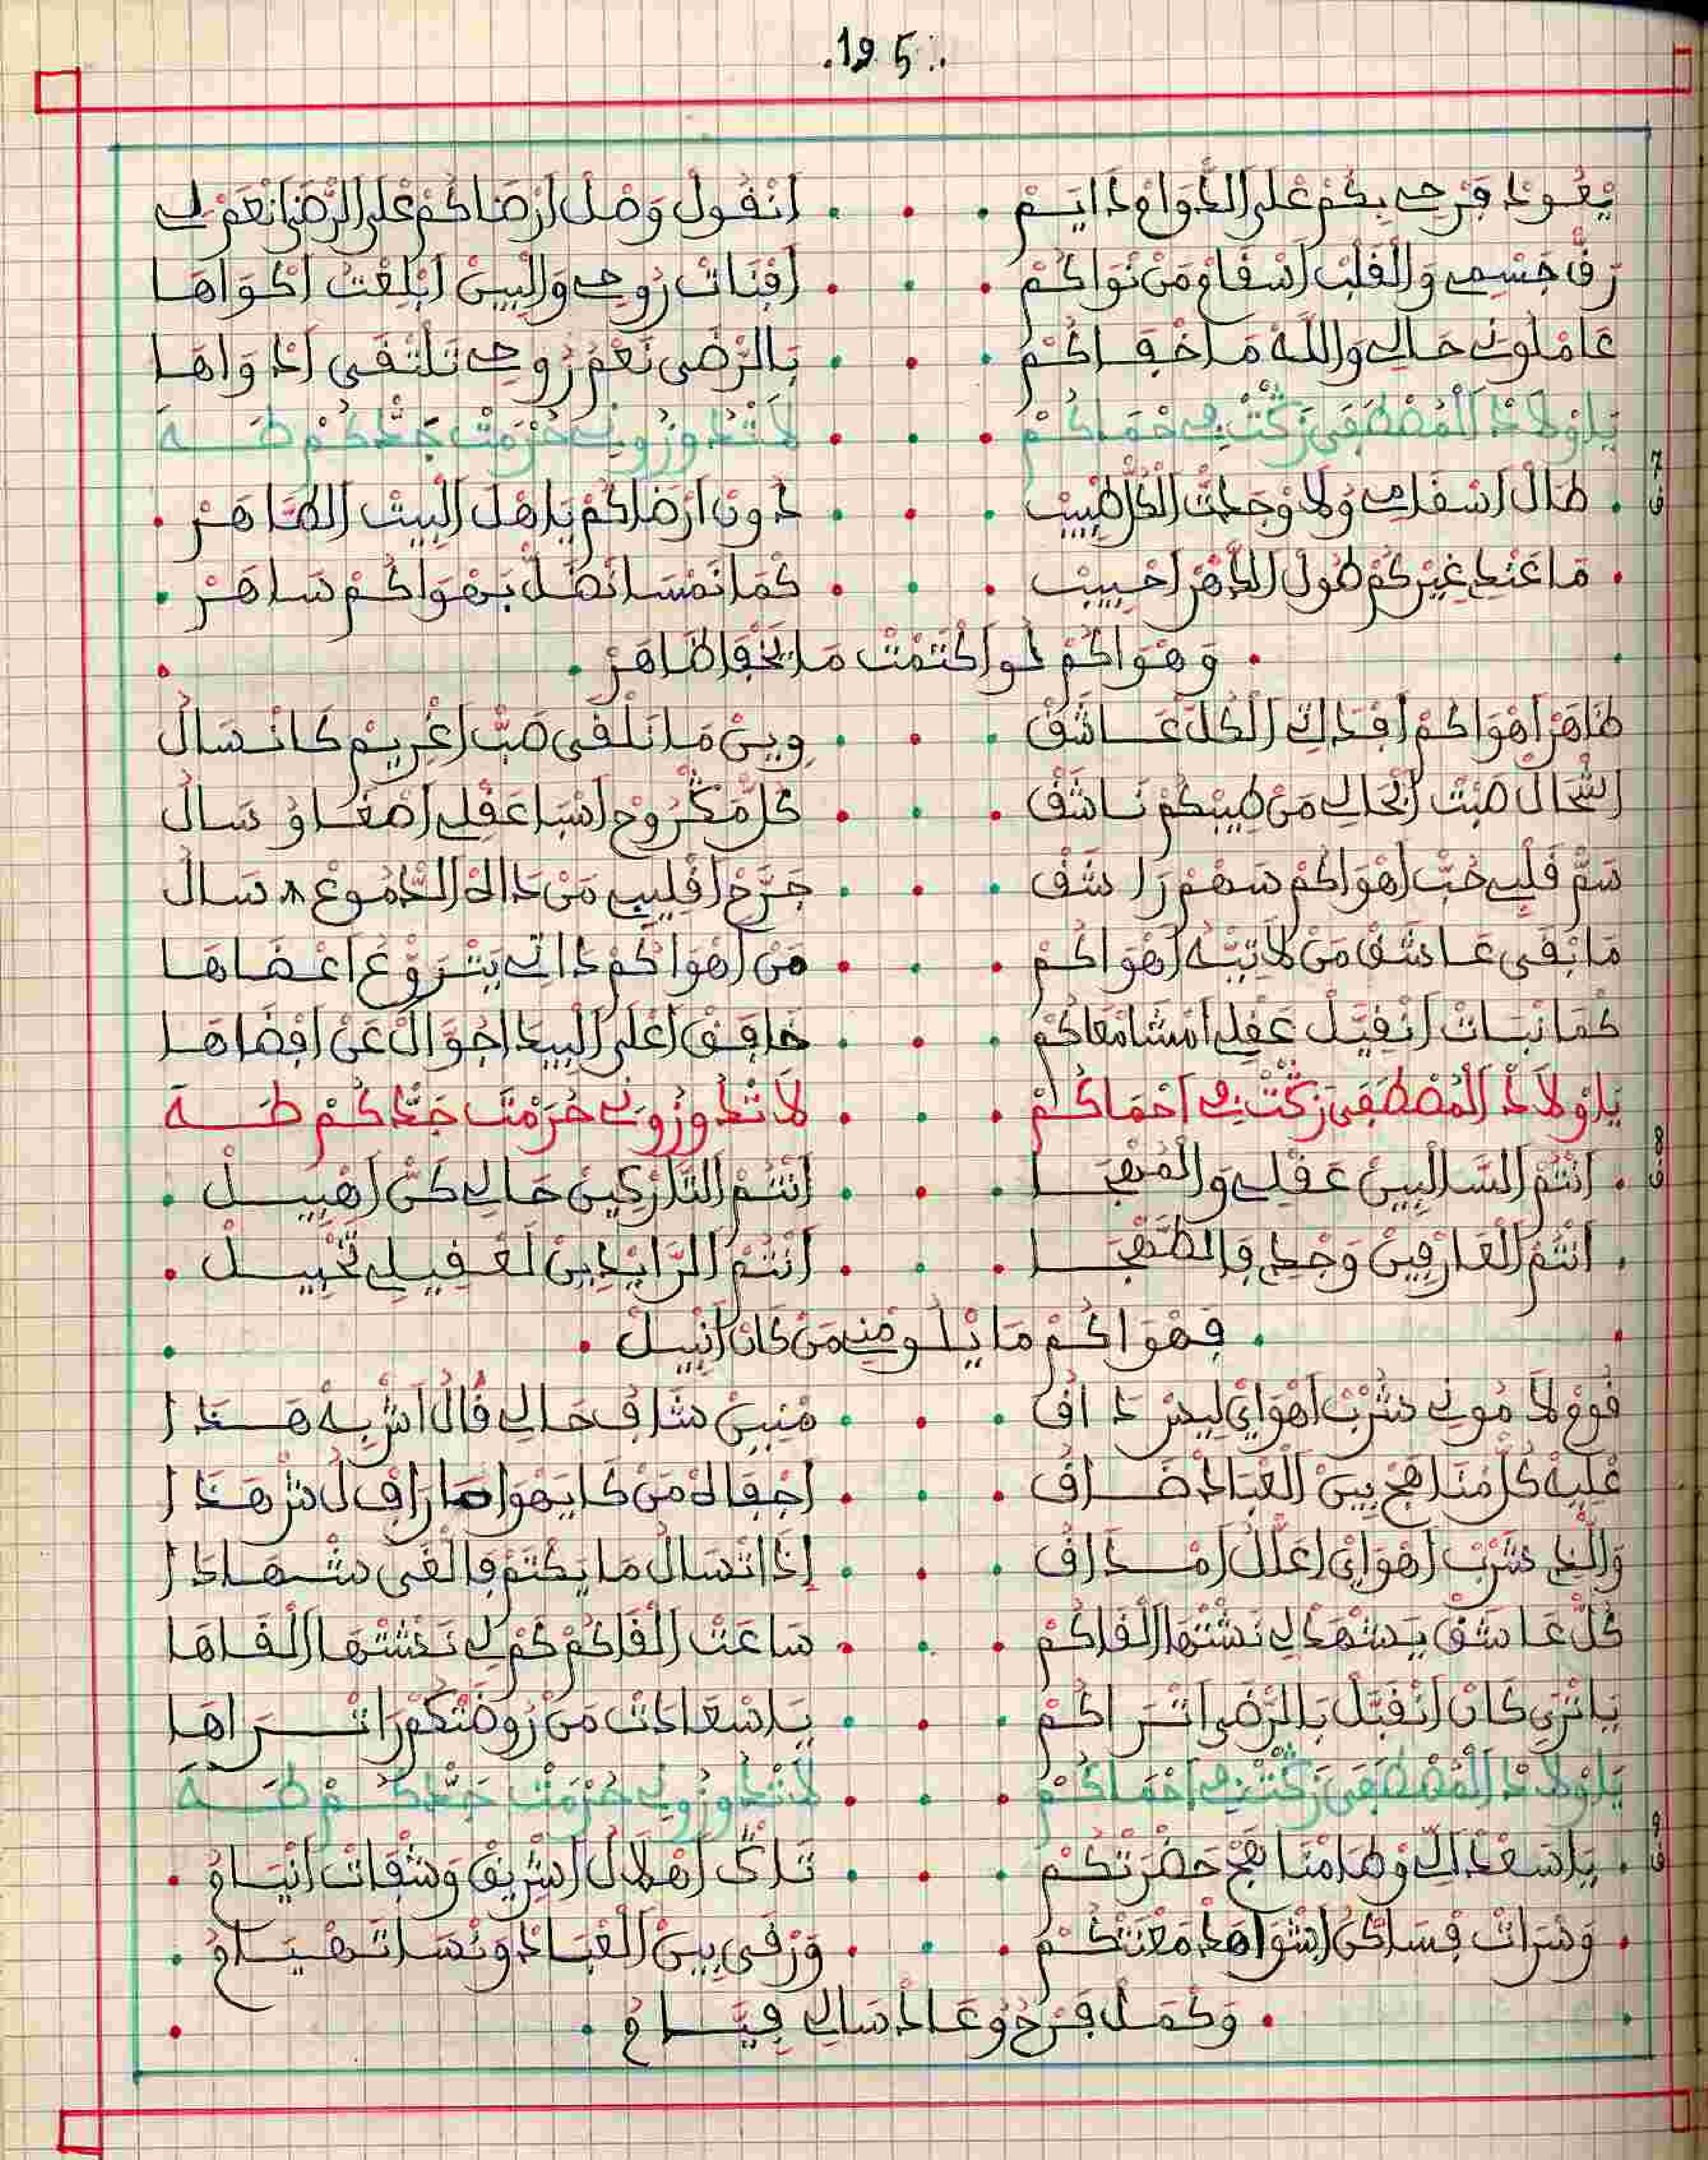 .195.
يْعُودْ فَرْحِي بِكُمْ عْلَى الدّْوَامْ دَايَمْ . . . اَنْقُولْ وَصْلْ اَرْضَاكُمْ عْلَى الرّْضَى اَنْعَمْ لِي
رَقّْ جَسْمِي وَالْقَلْبْ اَسْقَامْ مَنْ نْوَاكُمْ . . . اَفْنَاتْ رُوحِي وَالْبِينْ اَبْلِعْتْ اَكْوَاهَا
عَامْلُونِي حَالِي وَاللَّهْ مَا خْفَاكُمْ . . . بَالرّْضَى تَعْمْ رُوحِي تَلْتْقَى اَدْوَاهَا
يَاوْلَادْ الْمُصْطَفَى زَكْتْ فِي حْمَاكُمْ . . . لَا تْدُوزُونِي حُرْمَتْ جَدُّكُمْ طَهَ
ق 7
. طَالْ اَسْقَامِي وَلَا وْجَدْتْ الْكَلّْ طْبِيبْ . . . دُونْ اَرْضَاكُمْ يَاهْلْ الْبِيتْ الطَّاهَرْ .
. مَا عَنْدِي غِيرْكُمْ طُولْ الدّْهَرْ اَحْبِيبْ . . . كْمَا نَمْسَا نْضَلّْ بَهْوَاكُمْ سَاهَرْ .
. وَهْوَاكُمْ لُو اَكْتَمْتْ مَا يَخْفَا ظَاهَرْ .
ظَاهَرْ اَهْوَاكُمْ اَفْدَاتِي الْكُلّْ عَاشَقْ . . . وِينْ مَا نَلْقَى صَبّْ اَغْرِيمْ كَانْسَالْ
اَشْحَالْ صَبْتْ اَبْحَالِي مَنْ طِيبْكُمْ نَاشَقْ . . . كُلّْ مَكْرُوحْ اَسْبَا عَقْلِي اَصْغَاوْ سَالْ
سَمّْ قَلْبِي حُبّْ اَهْوَاكُمْ سَهْمْ رَاشَقْ . . . جَرَّحْ اَقْلِيبِي مَنْ دَاهْ الدّْمُوعْ سَالْ
مَا بْقَى عَاشَقْ مَنْ لَا تِيّْهُ اَهْوَاكُمْ . . . مَنْ اَهْوَاكُمْ دَاتِي يَتْرَوّْعْ اَعْضَاهَا
كْمَا نْبَاتْ اَنْقِيّلْ عَقْلِي اَمْشَا مْعَاكُمْ . . . خَافَقْ اَعْلَى الْبِيدَ اَجْوَالْ عَنْ اَفْضَاهَا
يَاوْلَادْ الْمُصْطَفَى زَكْتْ فِي اَحْمَاكُمْ . . . لَا تْدُوزُونِي حُرْمَتْ جَدُّكُمْ طَهَ
ق 8
. اَنْتُمْ السَّالْبِينْ عَقْلِي وَالْمُهْجَا . . . اَنْتُمْ التَّارْكِينْ حَالِي كَنّْ اَهْبِيلْ .
. اَنْتُمْ الْعَارْفِينْ وَجْدِي فَالظَّهْجَا . . . اَنْتُمْ الزَّايْدِينْ لَعْقِيلِي تَخْبِيلْ .
. فِهْوَاكُمْ مَا يْلُومْنِي مَنْ كَانْ اَنْبِيلْ .
فُوقْ لَامُونِي شُرْبْ اَهْوَايْ لِيسْ دَاقْ . . . مْنِينْ شَافْ حَالِي قَالْ اَشْ بِهْ هَدَا
عْلِيهْ كُلّْ مْنَاهَجْ بِينْ الْعْبَادْ ضَاقْ . . . اَجْفَاهْ مَنْ كَا يَهْوَا صَارْ اَقْلْ شَرْ هَدَا
وَالّْدِي شْرَبْ اَهْوَايْ اَعْلَلْ اَمْدَاقْ . . . اِدَا اَتْسَالْ مَا يَكْتَمْ فَالْغَى شْهَادَا
كُلّْ عَاشَقْ يَشْهَدْ لِي نَشْتْهَا الْقَاكُمْ . . . سَاعَتْ الْقَاكُمْ كَمْ لِي نَشْتْهَا الْقَاهَا
يَا تْرَى كَانْ اَنْقْبَلْ بَالرّْضَى اَنْرَاكُمْ . . . يَا سْعَادَتْ مَنْ رُوضْتْكُمْ رَاتْرَاهَا
يَاوْلَادْ الْمُصْطَفَى زَكْتْ فِي اَحْمَاكُمْ . . . لَا تْدُوزُونِي حُرْمَتْ جَدُّكُمْ طَهَ
ق 9
. يَا سَعْدْ الِّي وْطَا مْنَاهَجْ حَضْرَتْكُمْ . . . تَاكْ اَهْلَالْ اَشْرِيقْ وَشْفَاتْ اَنْيَامُ .
. وَسْرَاتْ فْسَاكَنْ اَشْوَاهَدْ مَعْنَتْكُمْ . . . وَرْقَى بِينْ الْعْبَادْ وَنْسَا تَهْيَامُ .
. وَكْمَلْ فَرْحُ وْعَادْ سَالِي فِيَّامُ .